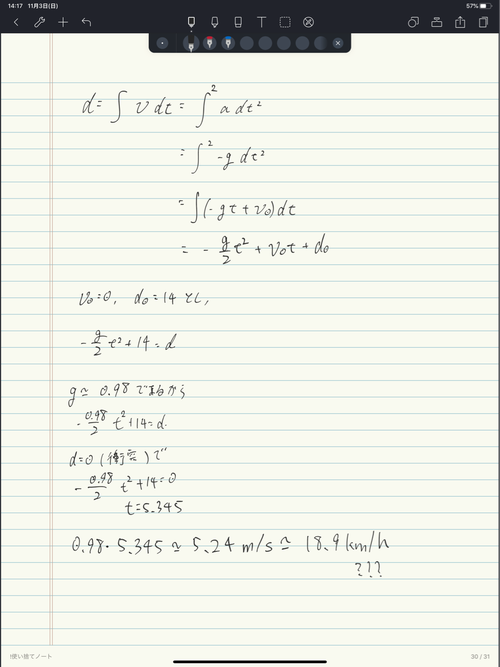 14:17 11月3日(日)
57%
d = ∫ v dt = ∫² a dt²
= ∫² -g dt²
= ∫(-gt + v₀) dt
= - g/2 t² + v₀t + d₀
v₀=0, d₀=14 とし,
- g/2 t² + 14 = d
g ≃ 0.98 であるから
- 0.98/2 t² + 14 = d.
d=0 (衝突) で
- 0.98/2 t² + 14 = 0
t = 5.345
0.98 · 5.345 ≃ 5.24 m/s ≃ 18.9 km/h
???
!使い捨てノート
30 / 31